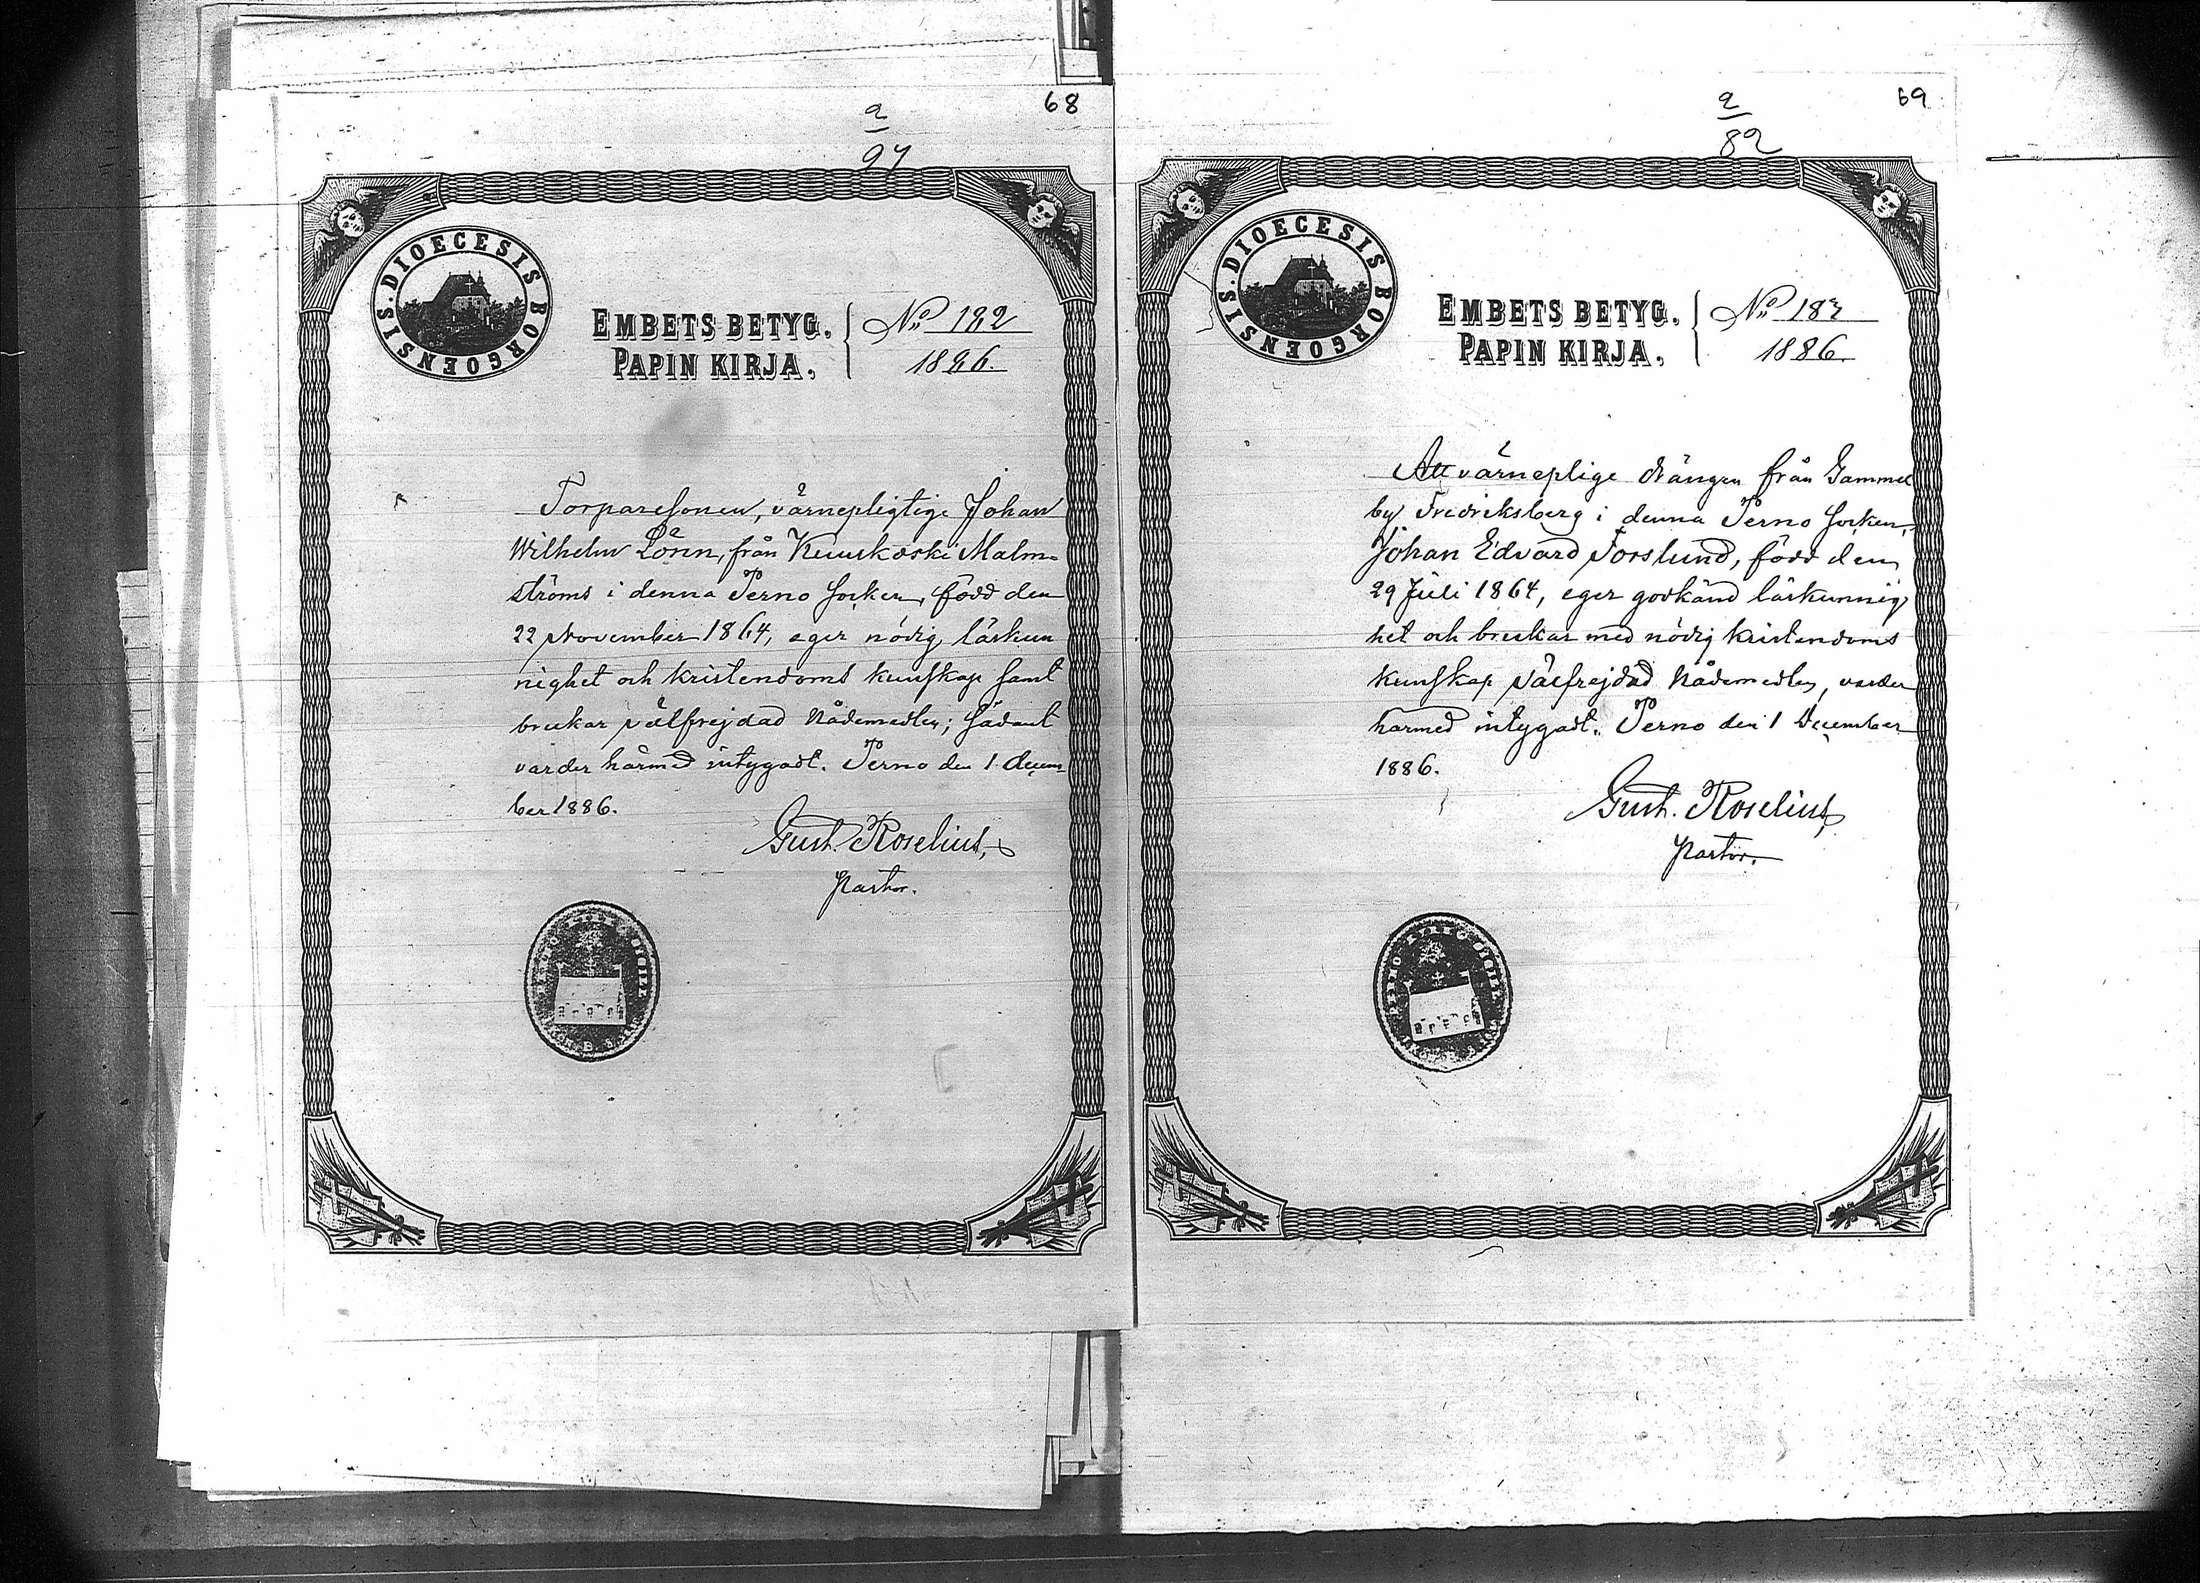 68
2
97
DIOECESIS BORGOENSIS.
EMBETS BETYG.
PAPIN KIRJA.
No 182
1886.
Torparesonen, värnepligtige Johan
Wilhelm Lönn, från Kuuskoski Malm-
ströms i denna Perno socken, född den
22 November 1864, eger nödig läskun
nighet och kristendoms kunskap samt
brukar välfrejdad nådemedlen; sådant
varder härmed intygadt. Perno den 1 Decem-
ber 1886.
Gust. Roselius,
Pastor.
69
2
82
DIOECESIS BORGOENSIS.
EMBETS BETYG.
PAPIN KIRJA.
No 183
1886.
Att värneplige drängen från Gammel
by Fredriksberg i denna Perno socken,
Johan Edvard Forslund, född den
29 Juli 1864, eger godkänd läskunnig
het och brukar med nödig kristendoms
kunskap välfrejdad nådemedlen, varder
härmed intygadt. Perno den 1 December
1886.
Gust. Roselius,
Pastor.